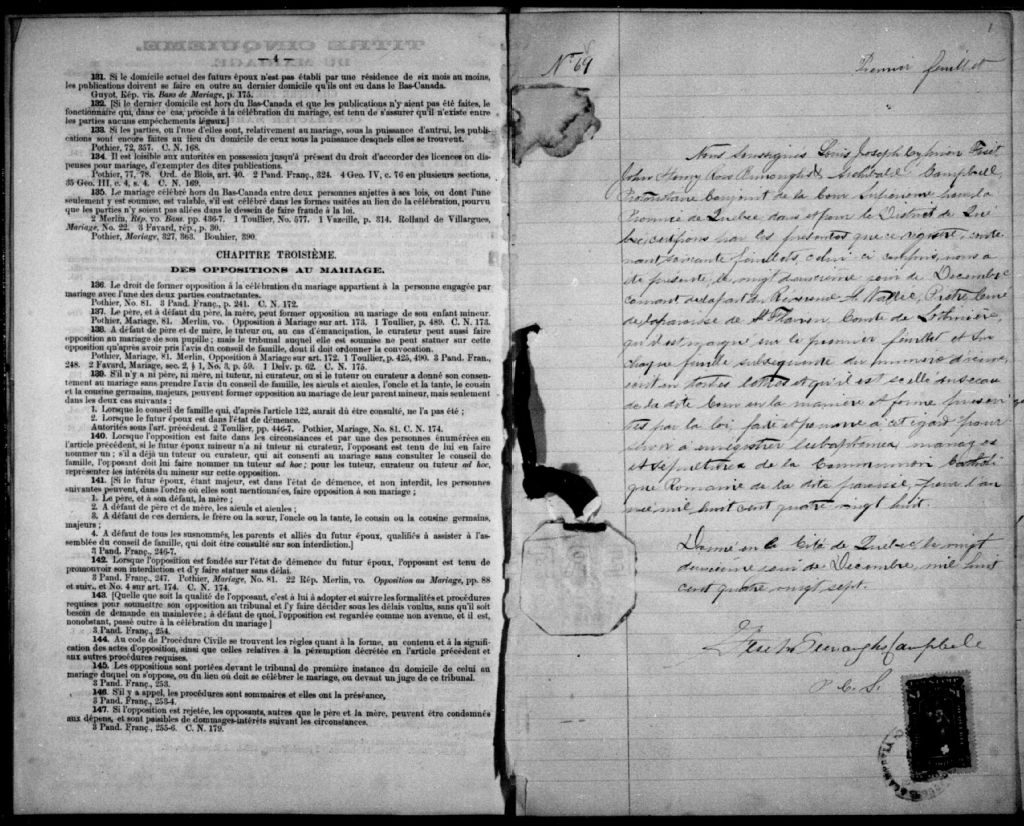 — 4 —
131. Si le domicile actuel des futurs époux n'est pas établi par une résidence de six mois au moins,
les publications doivent se faire en outre au dernier domicile qu'ils ont eu dans le Bas-Canada.
Guyot, Rép. vis. Bans de Mariage, p. 175.
132. [Si le dernier domicile est hors du Bas-Canada et que les publications n'y aient pas été faites, le
fonctionnaire qui, dans ce cas, procède à la célébration du mariage, est tenu de s'assurer qu'il n'existe entre
les parties aucuns empêchements légaux.]
133. Si les parties, ou l'une d'elles sont, relativement au mariage, sous la puissance d'autrui, les publi-
cations sont encore faites au lieu du domicile de ceux sous la puissance desquels elles se trouvent.
Pothier, 72, 357. C. N. 168.
134. Il est loisible aux autorités en possession jusqu'à présent du droit d'accorder des licences ou dis-
penses pour mariage, d'exempter des dites publications.
Pothier, 77, 78. Ord. de Blois, art. 40. 2 Pand. Franç., 324. 4 Geo. IV, c. 76 en plusieurs sections,
35 Geo. III, c. 4, s. 4. C. N. 169.
135. Le mariage célébré hors du Bas-Canada entre deux personnes sujettes à ses lois, ou dont l'une
seulement y est soumise, est valable, s'il est célébré dans les formes usitées au lieu de la célébration, pourvu
que les parties n'y soient pas allées dans le dessein de faire fraude à la loi.
2 Merlin, Rép. vo. Bans. pp. 436-7. 1 Toullier, No. 577. 1 Vazeille, p. 314. Rolland de Villargues,
Mariage, No. 22. 3 Favard, rép., p. 30.
Pothier, Mariage, 327, 363. Bouhier, 390.
CHAPITRE TROISIÈME.
DES OPPOSITIONS AU MARIAGE.
136. Le droit de former opposition à la célébration du mariage appartient à la personne engagée par
mariage avec l'une des deux parties contractantes.
Pothier, No. 81. 3 Pand. Franç., p. 241. C. N. 172.
137. Le père, et à défaut du père, la mère, peut former opposition au mariage de son enfant mineur.
Pothier, Mariage, 81. Merlin, vo. Opposition à Mariage sur art. 173. 1 Toullier, p. 489. C. N. 173.
138. A défaut de père et de mère, le tuteur ou, au cas d'émancipation, le curateur peut aussi faire
opposition au mariage de son pupille ; mais le tribunal auquel elle est soumise ne peut statuer sur cette
opposition qu'après avoir pris l'avis du conseil de famille, dont il doit ordonner la convocation.
Pothier, Mariage, 81. Merlin, Opposition à Mariage sur art. 172. 1 Toullier, p. 425, 490. 3 Pand. Fran.,
248. 2 Favard, Mariage, sec. 2, § 1, No. 3, p. 59. 1 Delv. p. 62. C. N. 175.
139. S'il n'y a ni père, ni mère, ni tuteur, ni curateur, ou si le tuteur ou curateur a donné son consen-
tement au mariage sans prendre l'avis du conseil de famille, les aïeuls et aïeules, l'oncle et la tante, le cousin
et la cousine germains, majeurs, peuvent former opposition au mariage de leur parent mineur, mais seulement
dans les deux cas suivants ;
1. Lorsque le conseil de famille qui, d'après l'article 122, aurait dû être consulté, ne l'a pas été ;
2. Lorsque le futur époux est dans l'état de démence.
Autorités sous l'art. précédent. 2 Toullier, pp. 446-7. Pothier, Mariage, No. 81. C. N. 174.
140. Lorsque l'opposition est faite dans les circonstances et par une des personnes énumérées en
l'article précédent, si le futur époux mineur n'a ni tuteur ni curateur, l'opposant est tenu de lui en faire
nommer un ; s'il a déjà un tuteur ou curateur, qui ait consenti au mariage sans consulter le conseil de
famille, l'opposant doit lui faire nommer un tuteur ad hoc ; pour les tuteur, curateur ou tuteur ad hoc,
représenter les intérêts du mineur sur cette opposition.
141. [Si le futur époux, étant majeur, est dans l'état de démence, et non interdit, les personnes
suivantes peuvent, dans l'ordre où elles sont mentionnées, faire opposition à son mariage ;
1. Le père, et à son défaut, la mère ;
2. A défaut de père et de mère, les aïeuls et aïeules ;
3. A défaut de ces derniers, le frère ou la sœur, l'oncle ou la tante, le cousin ou la cousine germains,
majeurs ;
4. A défaut de tous les susnommés, les parents et alliés du futur époux, qualifiés à assister à l'as-
semblée du conseil de famille, qui doit être consulté sur son interdiction.]
3 Pand. Franç., 246-7.
142. Lorsque l'opposition est fondée sur l'état de démence du futur époux, l'opposant est tenu de
promouvoir son interdiction et d'y faire statuer sans délai.
3 Pand. Franç., 247. Pothier, Mariage, No. 81. 22 Rép. Merlin, vo. Opposition au Mariage, pp. 88
et suiv., et No. 4 sur art. 174. C. N. 174.
143. [Quelle que soit la qualité de l'opposant, c'est à lui à adopter et suivre les formalités et procédures
requises pour soumettre son opposition au tribunal et l'y faire décider sous les délais voulus, sans qu'il soit
besoin de demande en mainlevée ; à défaut de quoi, l'opposition est regardée comme non avenue, et il est,
nonobstant, passé outre à la célébration du mariage]
3 Pand. Franç., 254.
144. Au code de Procédure Civile se trouvent les règles quant à la forme, au contenu et à la signifi-
cation des actes d'opposition, ainsi que celles relatives à la péremption décrétée en l'article précédent et
aux autres procédures requises.
145. Les oppositions sont portées devant le tribunal de première instance du domicile de celui au
mariage duquel on s'oppose, ou du lieu où doit se célébrer le mariage, ou devant un juge de ce tribunal.
3 Pand. Franç., 253.
146. S'il y a appel, les procédures sont sommaires et elles ont la préséance,
3 Pand. Franç., 253-4.
147. Si l'opposition est rejetée, les opposants, autres que le père et la mère, peuvent être condamnés
aux dépens, et sont paisibles de dommages-intérêts suivant les circonstances.
3 Pand. Franç., 255-6. C. N. 179.
No 69
Premier feuillet
Nous soussignés Louis Joseph Cyprien Fiset
John Henry Ross Burroughs & Archibald Campbell
Protonotaire Conjoint de la Cour Supérieure pour la
Province de Québec dans et pour le District de Qué
bec certifions par les présentes que ce registre, conte
nant soixante feuillets, celui-ci compris, nous a
été présenté, le vingt deuxième jour de Décembre
courant de la part du Révérend Prêtre Curé
de la paroisse de St Flavien Comté de Lotbinière,
qu'il est marqué sur le premier feuillet et sur
chaque feuille subséquente du numéro
écrit en toutes lettres et qu'il est scellé du sceau
de la dite Cour en la manière et forme prescri
tes par la loi, faite et pourvue à cet égard pour
servir à enregistrer les baptêmes, mariages
et sépultures de la Communion Catholi
que Romaine de la dite paroisse, pour l'an
née mil huit cent quatre vingt huit.
Donné en la Cité de Québec le vingt
deuxième jour de Décembre, mil huit
cent quatre vingt sept.
Fiset Burroughs Campbell
P. C. S.